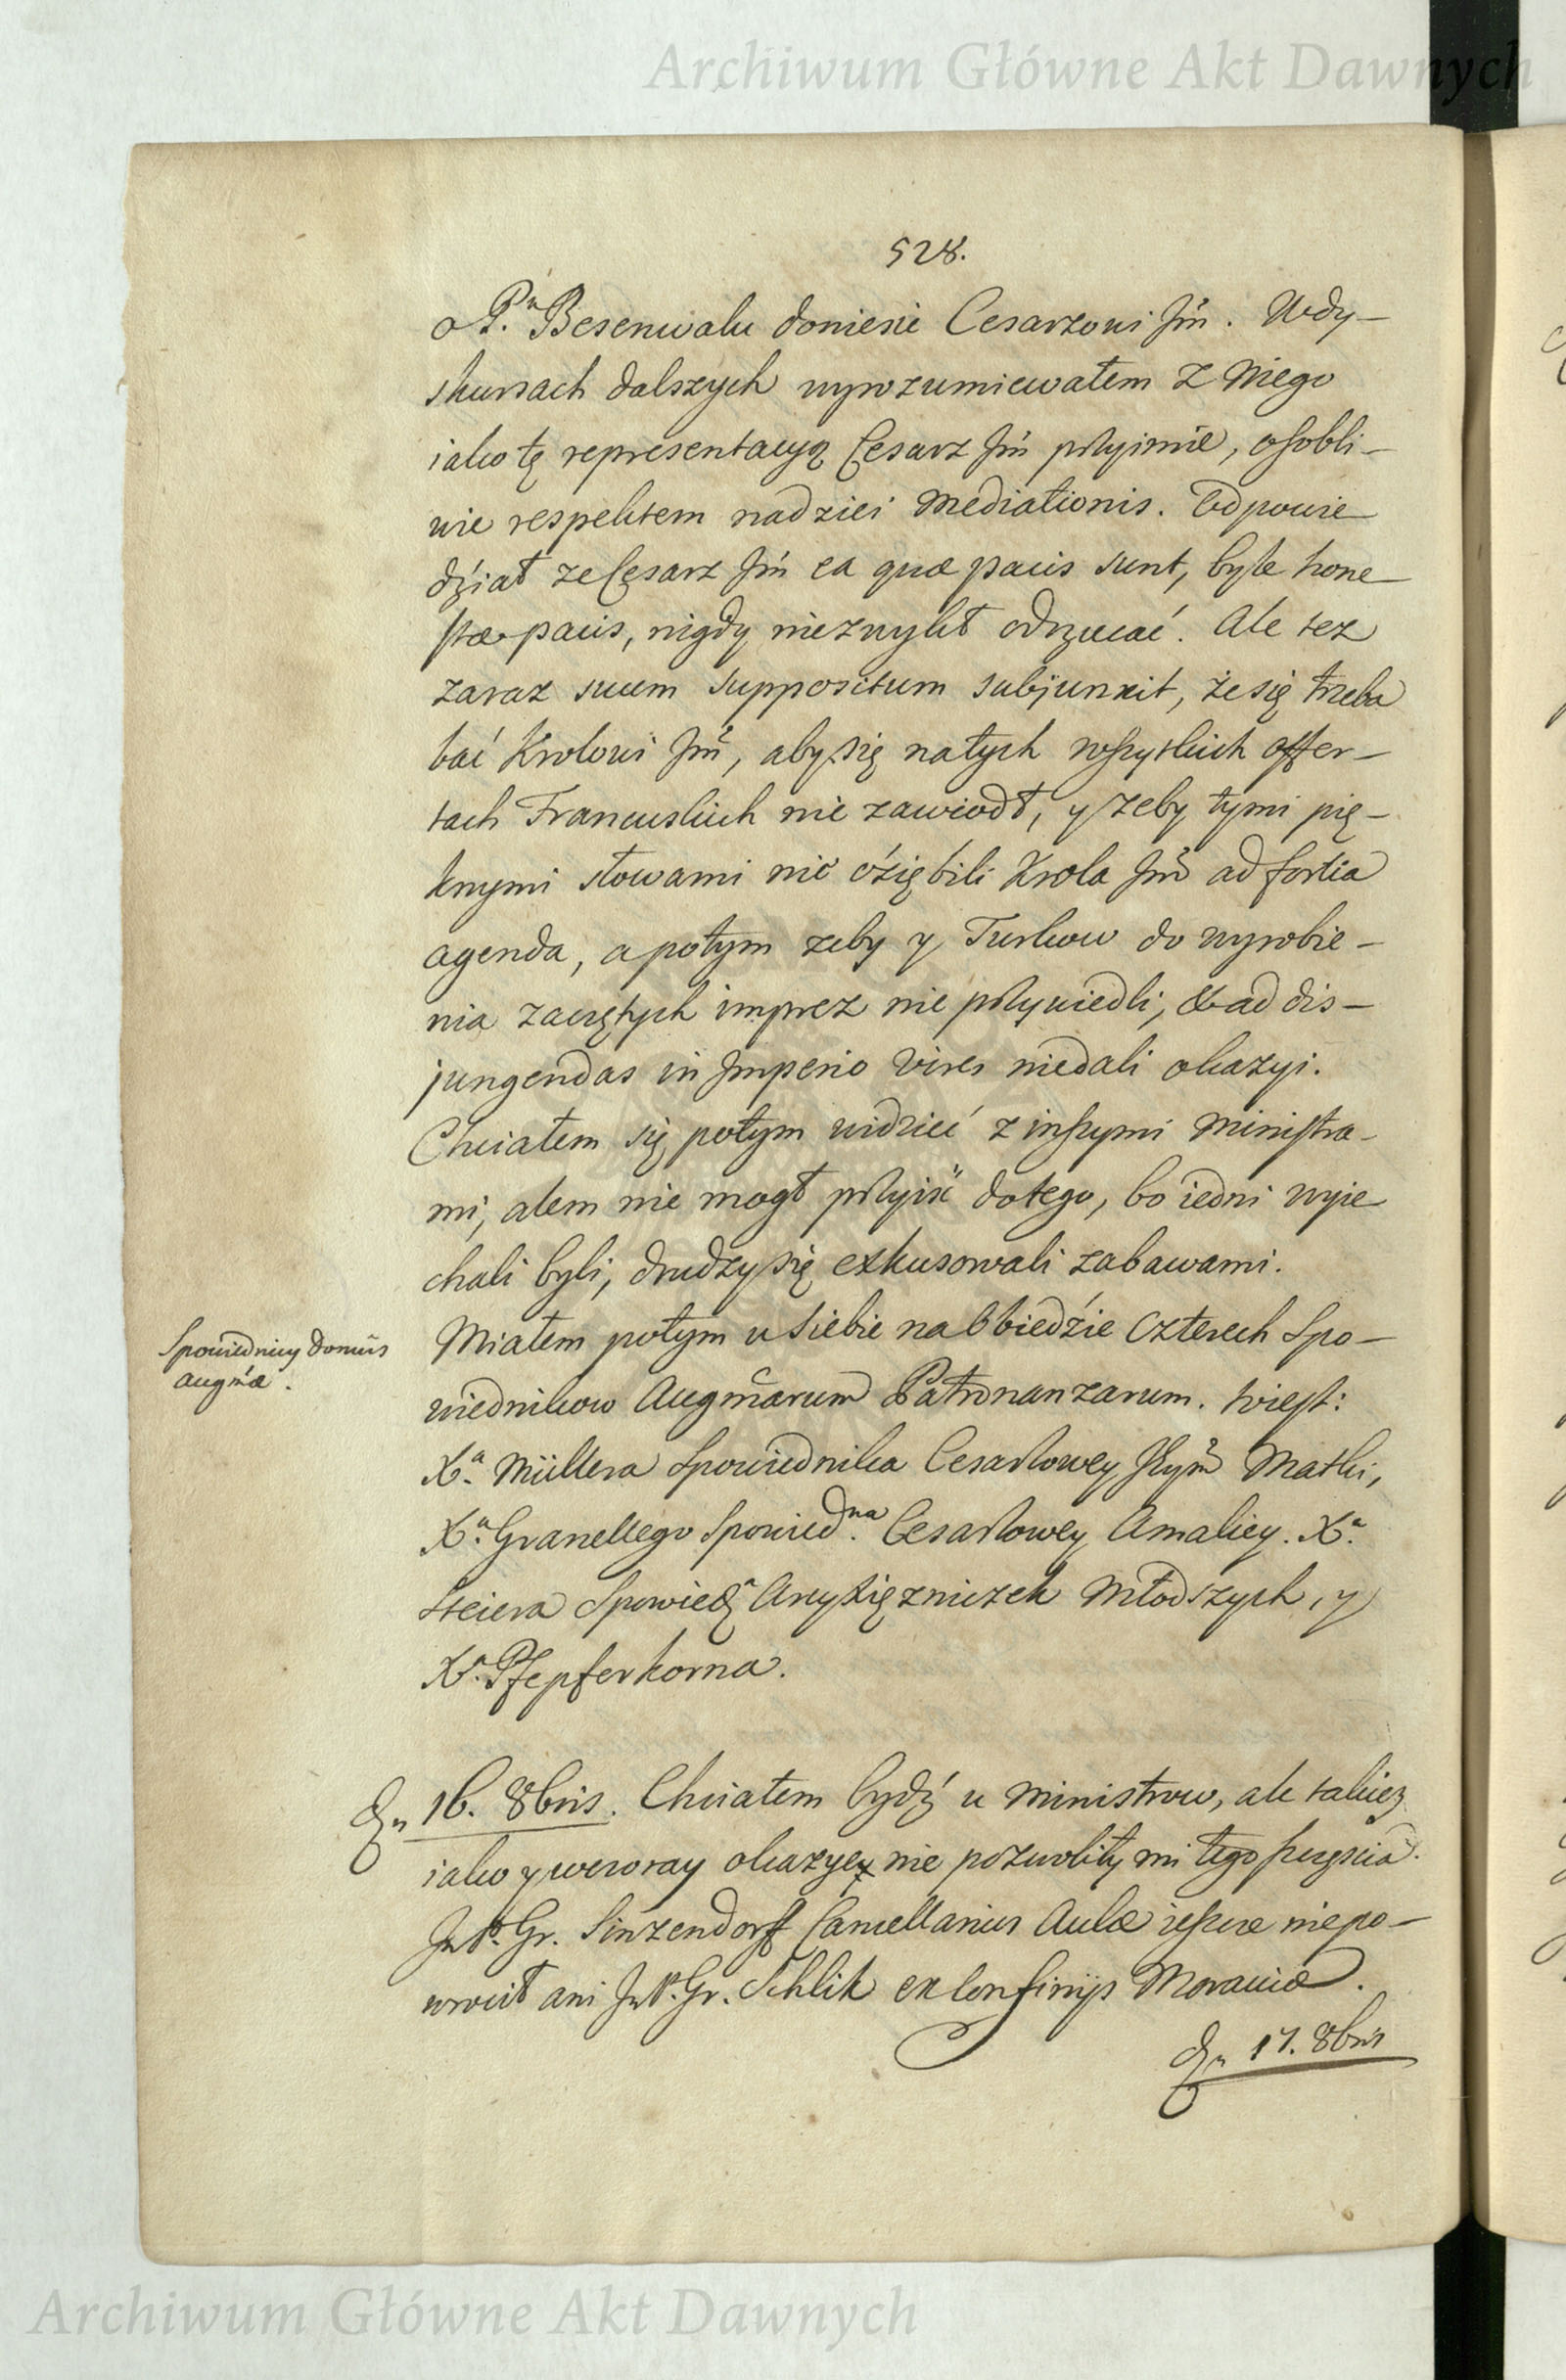 Archiwum Główne Akt Dawnych
528.
o P.ⁿ Besenwalu doniesie Cesarzowi Jm̃. W dy-
skursach dalszych wyrozumiewałem z Niego
iako tę representacyą Cesarz Jm̃ przyimie, osobli-
wie respektem nadziei Mediationis. Odpowie
dział ze Cesarz Jm̃ ea quæ pacis sunt, byle hone-
stæ pacis, nigdy niezwykł odrzucać. Ale tez
zaraz suum suppositum subjunxit, że się trzeba
bać Krolowi Jm̃, aby się natych wszytkich offer-
tach Francuskich nie zawiodł, y zeby tymi pię-
knymi słowami nie oźiębili Krola Jm̃ ad fortia
agenda, a potym zeby y Turkow do wyrobie-
nia zaczętych imprez nie przywiedli, & ad dis-
jungendas in Imperio vires niedali okazyi.
Chciałem się potym widzieć z inszymi Ministra-
mi, alem nie mogł przyiść dotego, bo iedni wyie
chali byli, drudzy się exkusowali zabawami.
Spowiednicy Domûs
Augm̃æ.
Miałem potym u siebie na Obiedźie czterech Spo-
wiednikow Augm̃arum Patronanzarum. to iest:
X.ᵃ Müllera Spowiednika Cesarzowey Jeym̃ Matki,
X.ᵃ Granellego Spowied.ⁿᵃ Cesarzowey Amaliey. X.ᵃ
Steiera Spowiedᵃ Arcyxiężniczek Młodszych, y
X.ᵃ Pfepferkorna.
Dⁿ 16. 8bris. Chciałem bydź u Ministrow, ale takiez
iako y wczoray okazye nie pozwoliły mi tego szczęścia.
JwP. Gr. Sinzendorff Cancellarius Aulæ ieszcze niepo-
wrocił ani JwP. Gr. Schlik ex Confinijs Moraviæ.
Dⁿ 17. 8bris
Archiwum Główne Akt Dawnych